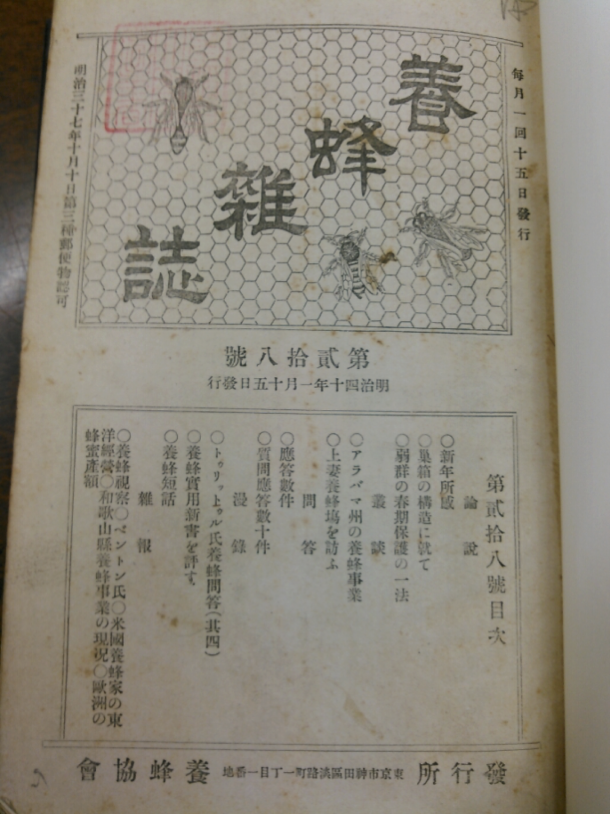 每月一回十五日發行
養蜂雜誌
明治三十七年十月十日第三種郵便物認可
第貳拾八號
明治四十年一月十五日發行
第貳拾八號目次
論說
○新年所感
○巢箱の構造に就て
○弱群の春期保護の一法
叢談
○アラバマ州の養蜂事業
○上妻養蜂塲を訪ふ
問答
○應答數件
○質問應答數十件
漫錄
○トゥリットゥル氏養蜂問答(其四)
○養蜂實用新書を評す
○養蜂短話
雜報
○養蜂視察○ベントン氏○米國養蜂家の東
洋經營○和歌山縣養蜂事業の現況○歐洲の
蜂蜜產額
發行所 東京市神田區淡路町一丁目一番地 養蜂協會